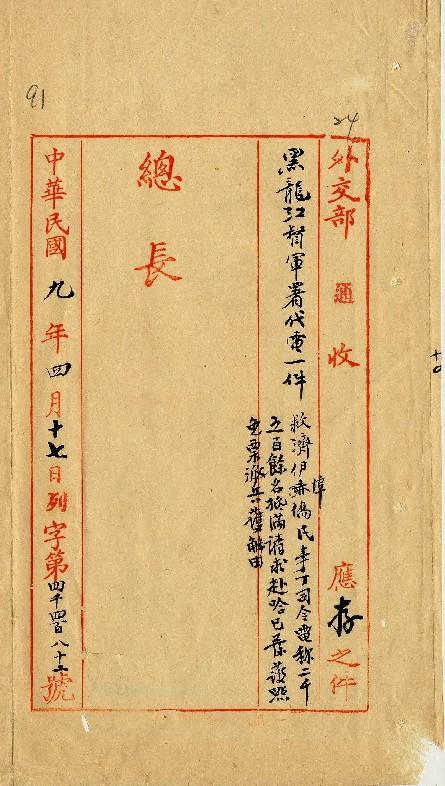 24
外交部 通 收 應 存 之件
黑龍江督軍署代電一件
救濟伊赤埠僑民事丁司令電稱二千
五百餘名抵滿請求赴哈已
免票派兵護
總 長
中華民國 九 年 四 月 十七 日列 字第 四千四百八十二 號
91